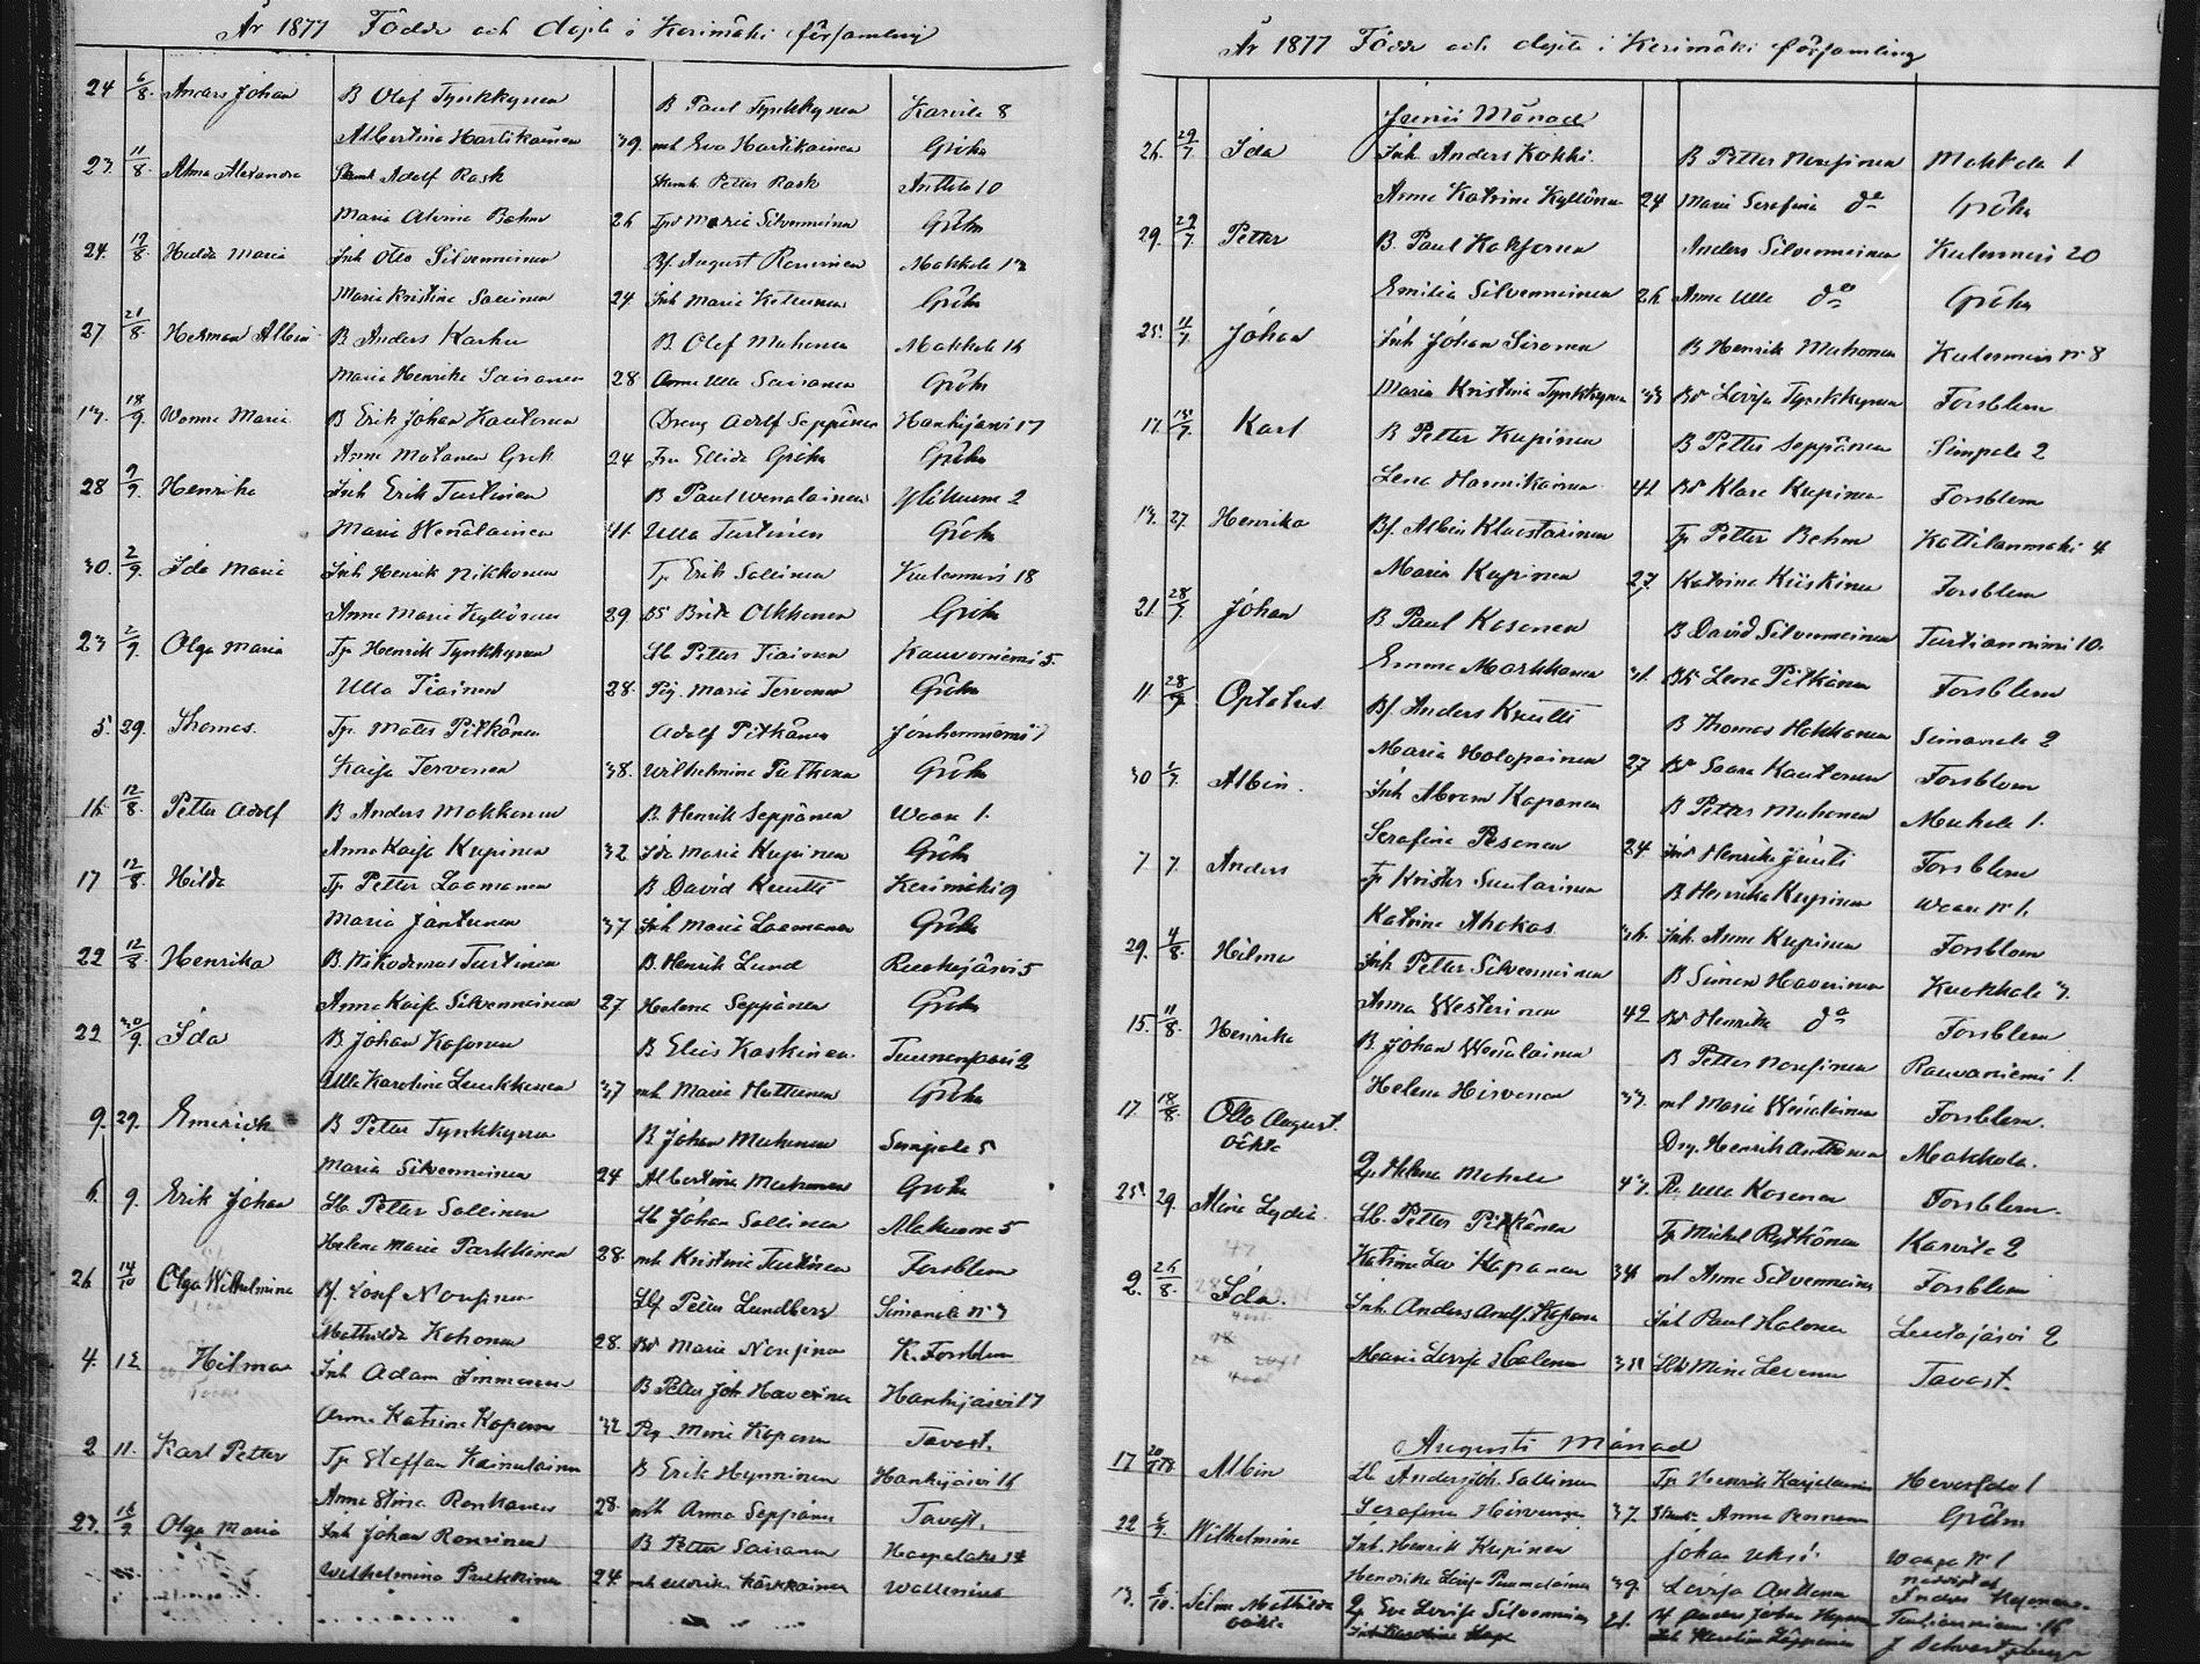 År 1877 Födde och döpte i Kerimäki församling
24 6/8. Anders Johan B Olof Tynkkynen B Paul Tynkkynen Karvila 8
Albertina Hartikainen 39. mh Eva Hartikainen Gröhn
23. 11/8. Alma Alexandra Adolf Rask Petter Rask Anttola 10
Maria Alvina Behm 26 Maria Silvenneinen Gröhn
24. 19/8. Hulda Maria Inh Otto Silvenneinen Bf. August Ronninen Makkola 13
Maria Kristina Sallinen 24 Inh Maria Kettunen Gröhn
27 21/8. Herman Albin B Anders Karhu B. Olof Muhonen Makkola 16
Maria Henrika Sairanen 28 Anna Ulla Sairanen Gröhn
13. 18/9. Wenne Maria B Erik Johan Kautonen Dreng Adolf Seppänen Hankijärvi 17
Anna Matanen 24 Fru Ellida Gröhn Gröhn
28 9/9. Henrika Inh Erik Turtinen B Paul Wenalainen Ylikuona 2
Maria Wenälainen 41. Ulla Turtinen Gröhn
30. 2/9. Ida Maria Inh Henrik Nikkonen Tp Erik Sallinen Kulenniemi 18
Anna Maria Kyllönen 29 Brita Olkkonen Gröhn
23 2/9. Olga Maria Tp Henrik Tynkkynen Lb. Petter Tiainen Rauvaniemi 5.
Ulla Tiainen 28. Pig. Maria Tervonen Gröhn
5. 29. Thomas. Tp. Mats Pitkänen Adolf Pitkänen Jouhenniemi 7
Kaisa Tervonen 38. Wilhelmina Puttonen Gröhn
16. 12/8. Petter Adolf B Anders Makkonen B. Henrik Seppänen Waara 1.
Anna Kaisa Kupinen 32 Ida Maria Kupinen Gröhn
17 12/8. Hilda Tp. Petter Laamanen B David Kuutti Kerimäki 9
Maria Jäntunen 37 Inh Maria Laamanen Gröhn
22 12/8. Henrika B. Nikodemus Turtinen B. Henrik Lund Ruokojärvi 5
Anna Kaisa Silvenneinen 27 Helena Seppänen Gröhn
22 30/9. Ida B. Johan Kosonen B Elias Kaskinen Tuunenpari 2
Ulla Karolina Luukkonen 37 mh Maria Huttunen Gröhn
9. 29. Emerick B Petter Tynkkynen B Johan Muhonen Simpala 5
Maria Silvenneinen 24 Albertina Muhonen Gröhn
6. 9. Erik Johan Lb Petter Sallinen Lb Johan Sallinen Alakuona 5
Helena Maria Parkkinen 28. mh Kristina Turtinen Forsblom
26 14/10 Olga Wilhelmina Bf. Josef Nousinen Petter Lundberg Simanala nr 3
Mathilda Kohonen 28. Maria Nousinen K. Forsblom
4. 12 Hilma Inh Adam Immonen B Petter Joh Haverinen Hankijärvi 17
Anna Katrina Koponen 32 Pig. Maria Koponen Tavast.
2 11. Karl Petter Tp Staffan Kainulainen B Erik Hynninen Hankijärvi 16
Anna Stina Ronkanen 28. mh Anna Seppänen Tavast.
23. 16/9 Olga Maria Inh Johan Ronninen B Petter Sairanen Haapalaks 14
Wilhelmina Pulkkinen 24. mh Ulrika Kärkkäinen Wallenius
År 1877 Födde och döpte i Kerimäki församling
Junii Månad
26. 29/7. Ida Inh. Anders Kokki. B Petter Nousinen Makkola 1
Anna Katrina Kyllönen 24 Maria Serafina do Gröhn
29. 29/7. Petter B. Paul Kosonen Anders Silvenneinen Kulenniemi 20
Emilia Silvenneinen 26 Anna Ulla do Gröhn
25. 11/7. Johan Inh Johan Sironen B Henrik Muhonen Kulenniemi nr 8
Maria Kristina Tynkkynen 33 Lovisa Tynkkynen Forsblom
17. 15/7. Karl B Petter Kupinen B Petter Seppänen Simpala 2
Lena Hannikainen 41 Klara Kupinen Forsblom
13. 27. Henrika Bf. Albin Kluustarinen Tp Petter Behm Kattilanmäki 4
Maria Kupinen 27. Katrina Kiiskinen Forsblom
21. 28/7 Johan B Paul Kosonen B David Silvenneinen Turtianniemi 10.
Emma Markkanen 31. Lena Pitkänen Forsblom
11. 28/7 Optatus. Bf. Anders Kuutti B Thomas Makkonen Simanala 2
Maria Holopainen 27 Saara Kautonen Forsblom
30 1/7. Albin. Inh Abram Kapanen B Petter Muhonen Muhola 1.
Serafina Pesonen 24 Henrika Juuti Forsblom
7 7. Anders Tp Krister Suutarinen B Henrika Kupinen Waara nr 1.
Katrina Ahokas 36. Inh. Anna Kupinen Forsblom
29. 4/8. Hilma Inh Petter Silvenneinen B Simon Haverinen Kuokkala 3.
Anna Westerinen 42 Henrika do Forsblom
15. 11/8. Henrika B. Johan Wenälainen B Petter Nousinen Rauvaniemi 1.
Helena Hirvonen 33. mh Maria Wenälainen Forsblom.
17. 18/8. Otto August. Drg. Henrik Anttonen Makkola.
oäkta Helena 43. Ulla Kosonen Forsblom.
25. 29. Alina Lydia. Lb. Petter Pitkänen Tp Michel Rytkönen Karvila 2
Katrina Kapanen 34 mh Anna Silvenneinen Forsblom
2. 26/8. Ida. Inh. Anders Adolf Kosonen Inh Paul Halonen Lautojärvi 2
Maria Lovisa Halonen Mina Levonen Tavast.
Augusti Månad
17 Albin Lb Anders Joh. Sallinen Tp Henrik Karjalainen 1
Serafina Hirvonen 37. Anna Gröhn
22 Wilhelmina Inh. Henrik Kupinen Johan Uksi. Waara nr 1
Henrika 39. Lovisa Anttonen
13. 5/10. Selma Mathilda Eva Lovisa Silvenneinen 21. Anders Johan
oäkta